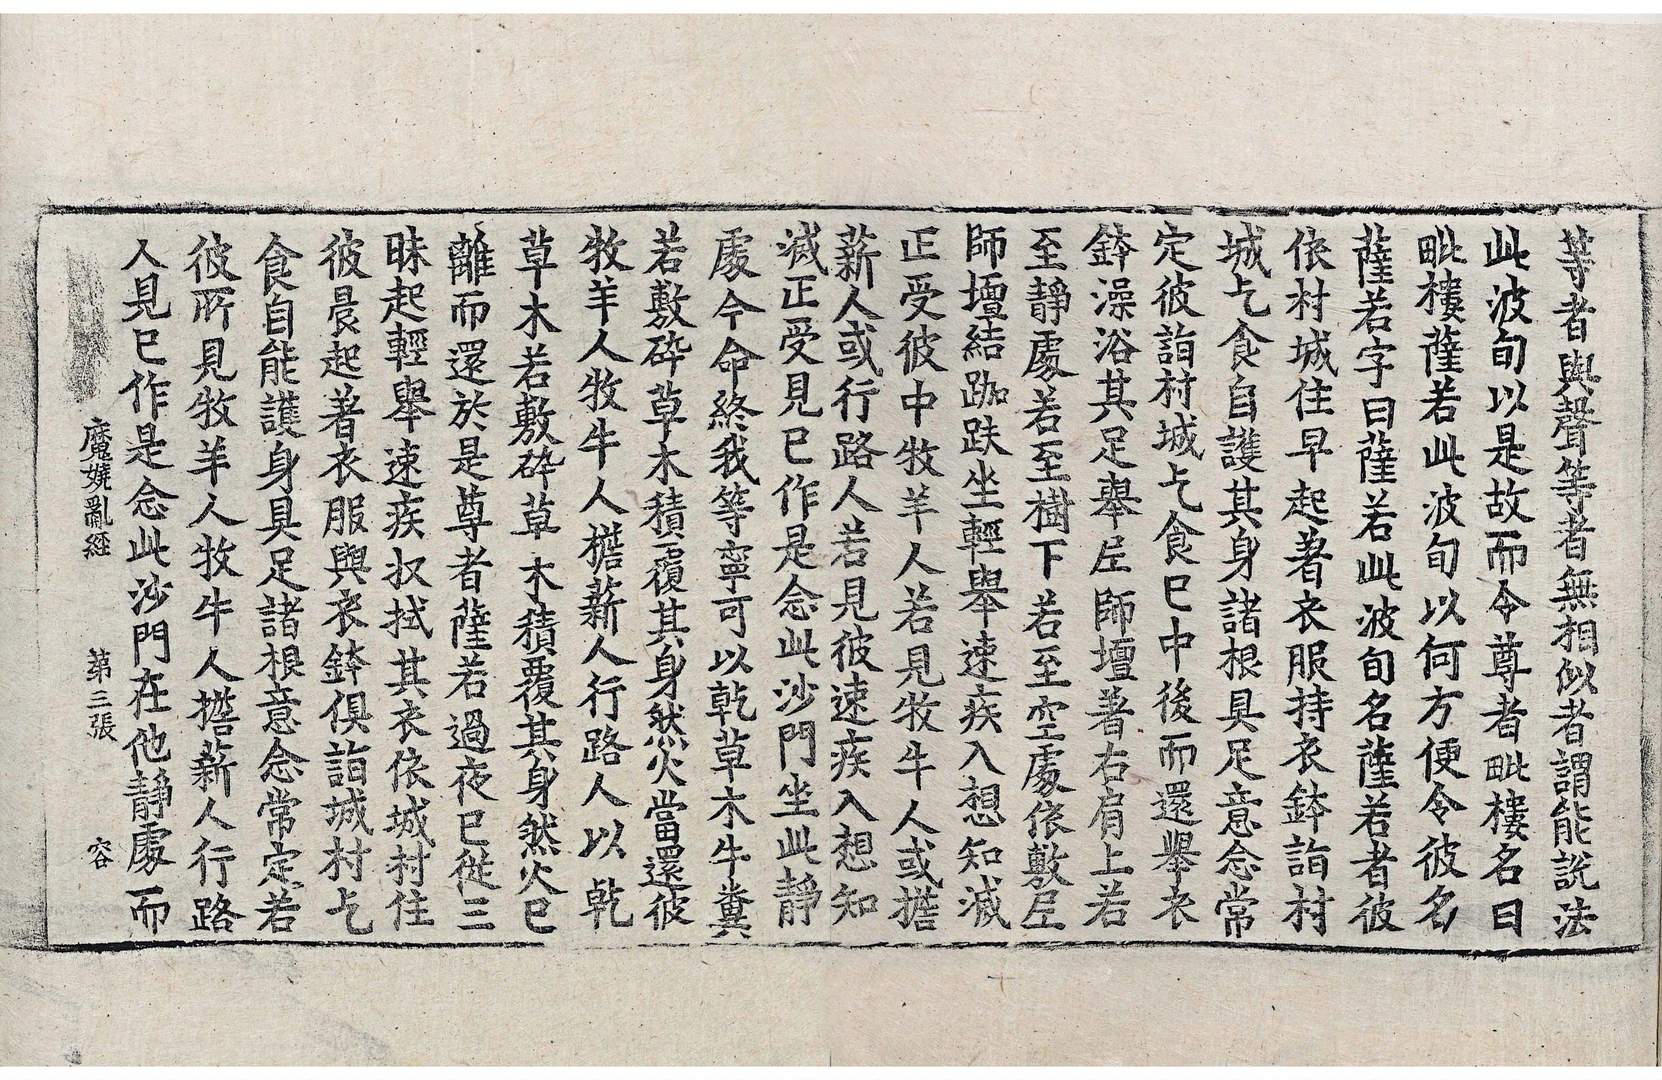 等者與聲等者無相似者謂能說法
此波旬以是故而令尊者毗樓名曰
毗樓薩若此波旬以何方便令彼名
薩若字曰薩若此波旬名薩若者彼
依村城住早起著衣服持衣鉢詣村
城乞食自護其身諸根具足意念常
定彼詣村城乞食已中後而還舉衣
鉢澡浴其足舉尼師壇著右肩上若
至靜處若至樹下若至空處依敷尼
師壇結跏趺坐輕舉速疾入想知滅
正受彼中牧羊人若見牧牛人或擔
薪人或行路人若見彼速疾入想知
滅正受見已作是念此沙門坐此靜
處令命終我等寧可以乾草木牛糞
若敷碎草木積覆其身然火當還彼
牧羊人牧牛人擔薪人行路人以乾
草木若敷碎草木積覆其身然火已
離而還於是尊者薩若過夜已從三
昧起輕舉速疾收拭其衣依城村住
彼晨起著衣服與衣鉢俱詣城村乞
食自能護身具足諸根意念常定若
彼所見牧羊人牧牛人擔薪人行路
人見已作是念此沙門在他靜處而
魔嬈亂經 第三張 容